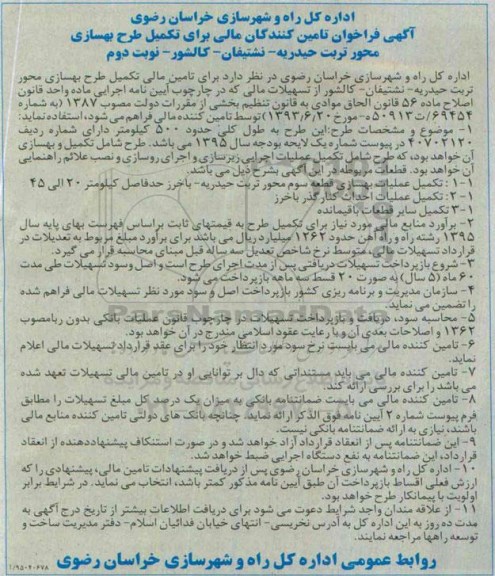 اداره کل راه و شهرسازی خراسان رضوی
آگهی فراخوان تامین کنندگان مالی برای تکمیل طرح بهسازی
محور تربت حیدریه- نشتیفان- کالشور- نوبت دوم
اداره کل راه و شهرسازی خراسان رضوی در نظر دارد برای تامین مالی تکمیل طرح بهسازی محور
تربت حیدریه- نشتیفان- کالشور از تسهیلات مالی که در چارچوب آیین نامه اجرایی ماده واحد قانون
اصلاح ماده ۵۶ قانون الحاق موادی به قانون تنظیم بخشی از مقررات دولت مصوب ۱۳۸۷ (به شماره
۶۹۴۵۴/ت۵۰۹۱۳ه- مورخ ۱۳۹۳/۶/۲۰) توسط تامین کننده مالی فراهم می شود، استفاده نماید:
۱- موضوع و مشخصات طرح: این طرح به طول کلی حدود ۵۰۰ کیلومتر دارای شماره ردیف
۴۰۷۰۲۱۲۰ در پیوست شماره یک لایحه بودجه سال ۱۳۹۵ می باشد. طرح شامل تکمیل و بهسازی
آن خواهد بود، که طرح شامل تکمیل عملیات اجرایی زیرسازی و اجرای روسازی و نصب علائم راهنمایی
آن خواهد بود. قطعات مربوطه در این آگهی بشرح ذیل می باشد.
۱-۱: تکمیل عملیات بهسازی قطعه سوم محور تربت حیدریه- باخرز حدفاصل کیلومتر ۲۰ الی ۴۵
۱-۲: تکمیل عملیات احداث کنار گذر باخرز
۱-۳ تکمیل سایر قطعات باقیمانده
۲- برآورد منابع مالی مورد نیاز برای تکمیل طرح به قیمتهای ثابت براساس فهرست بهای پایه سال
۱۳۹۵ رشته راه و راه آهن حدود ۱۲۶۲ میلیارد ریال می باشد برای برآورد مبلغ مربوط به تعدیلات در
قرارداد تسهیلات مالی، متوسط نرخ شاخص تعدیل سه ساله قبل مبنای محاسبه قرار می گیرد.
۳- شروع بازپرداخت تسهیلات دریافتی پس از مدت اجرای طرح است و اصل و سود تسهیلات طی مدت
۶۰ ماه (۵ سال) به صورت ۲۰ قسط سه ماهه بازپرداخت می شود.
۴- سازمان مدیریت و برنامه ریزی کشور بازپرداخت اصل و سود مورد نظر تسهیلات مالی فراهم شده
را تضمین می نماید.
۵- محاسبه سود، دریافت و بازپرداخت تسهیلات در چارچوب قانون عملیات بانکی بدون ربا مصوب
۱۳۶۲ و اصلاحات بعدی آن و با رعایت عقود اسلامی مندرج در آن خواهد بود.
۶- تامین کننده مالی می بایست نرخ سود مورد انتظار خود را برای عقد قرارداد تسهیلات مالی اعلام
نماید.
۷- تامین کننده مالی می باید مستنداتی که دال بر توانایی او در تامین مالی تسهیلات تعهد شده
می باشد را برای بررسی ارائه کند.
۸- تامین کننده مالی می بایست ضمانتنامه بانکی به میزان یک درصد کل مبلغ تسهیلات را مطابق
فرم پیوست شماره ۲ آیین نامه فوق الذکر ارائه نماید. چنانچه بانک های دولتی تامین کننده منابع مالی
باشند، نیازی به ارائه ضمانتنامه بانکی نیست.
۹- این ضمانتنامه پس از انعقاد قرارداد آزاد خواهد شد و در صورت استنکاف پیشنهاددهنده از انعقاد
قرارداد، این ضمانتنامه به نفع دستگاه اجرایی ضبط خواهد شد.
۱۰- اداره کل راه و شهرسازی خراسان رضوی پس از دریافت پیشنهادات تامین مالی، پیشنهادی را که
ارزش فعلی اقساط بازپرداخت آن طبق آیین نامه مذکور کمتر باشد، انتخاب می نماید. در شرایط برابر
اولویت با پیمانکار طرح خواهد بود.
۱۱- از علاقه مندان واجد شرایط دعوت می شود برای دریافت اطلاعات بیشتر از تاریخ درج آگهی به
مدت ده روز به این اداره کل به آدرس نخریسی- انتهای خیابان فدائیان اسلام- دفتر مدیریت ساخت و
توسعه راهها مراجعه نمایند.
روابط عمومی اداره کل راه و شهرسازی خراسان رضوی
۹۵۰۴۰۶۷۸/آ
ParsNamadData